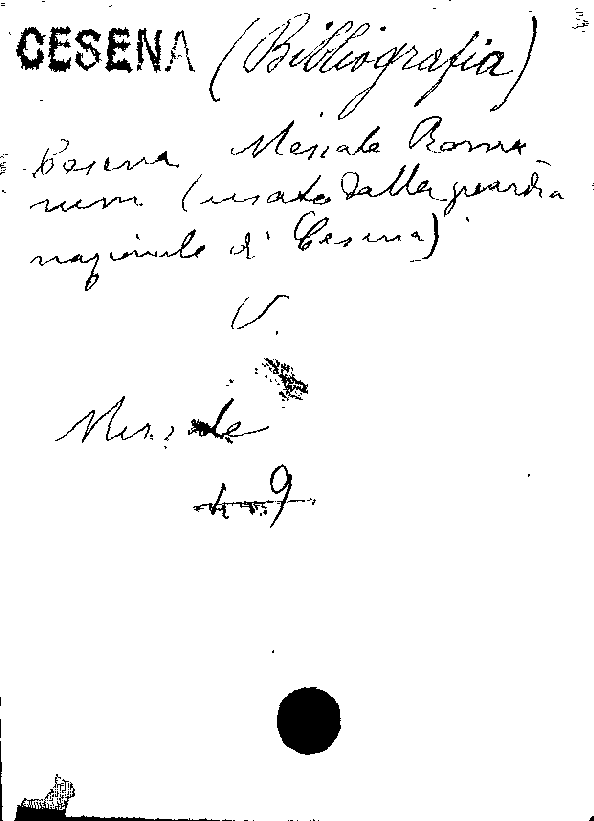 CESENA (Bibliografia)
Cesena Missale Roma
num (usato dalla guardia
nazionale di Cesena)
V.
Missale
9